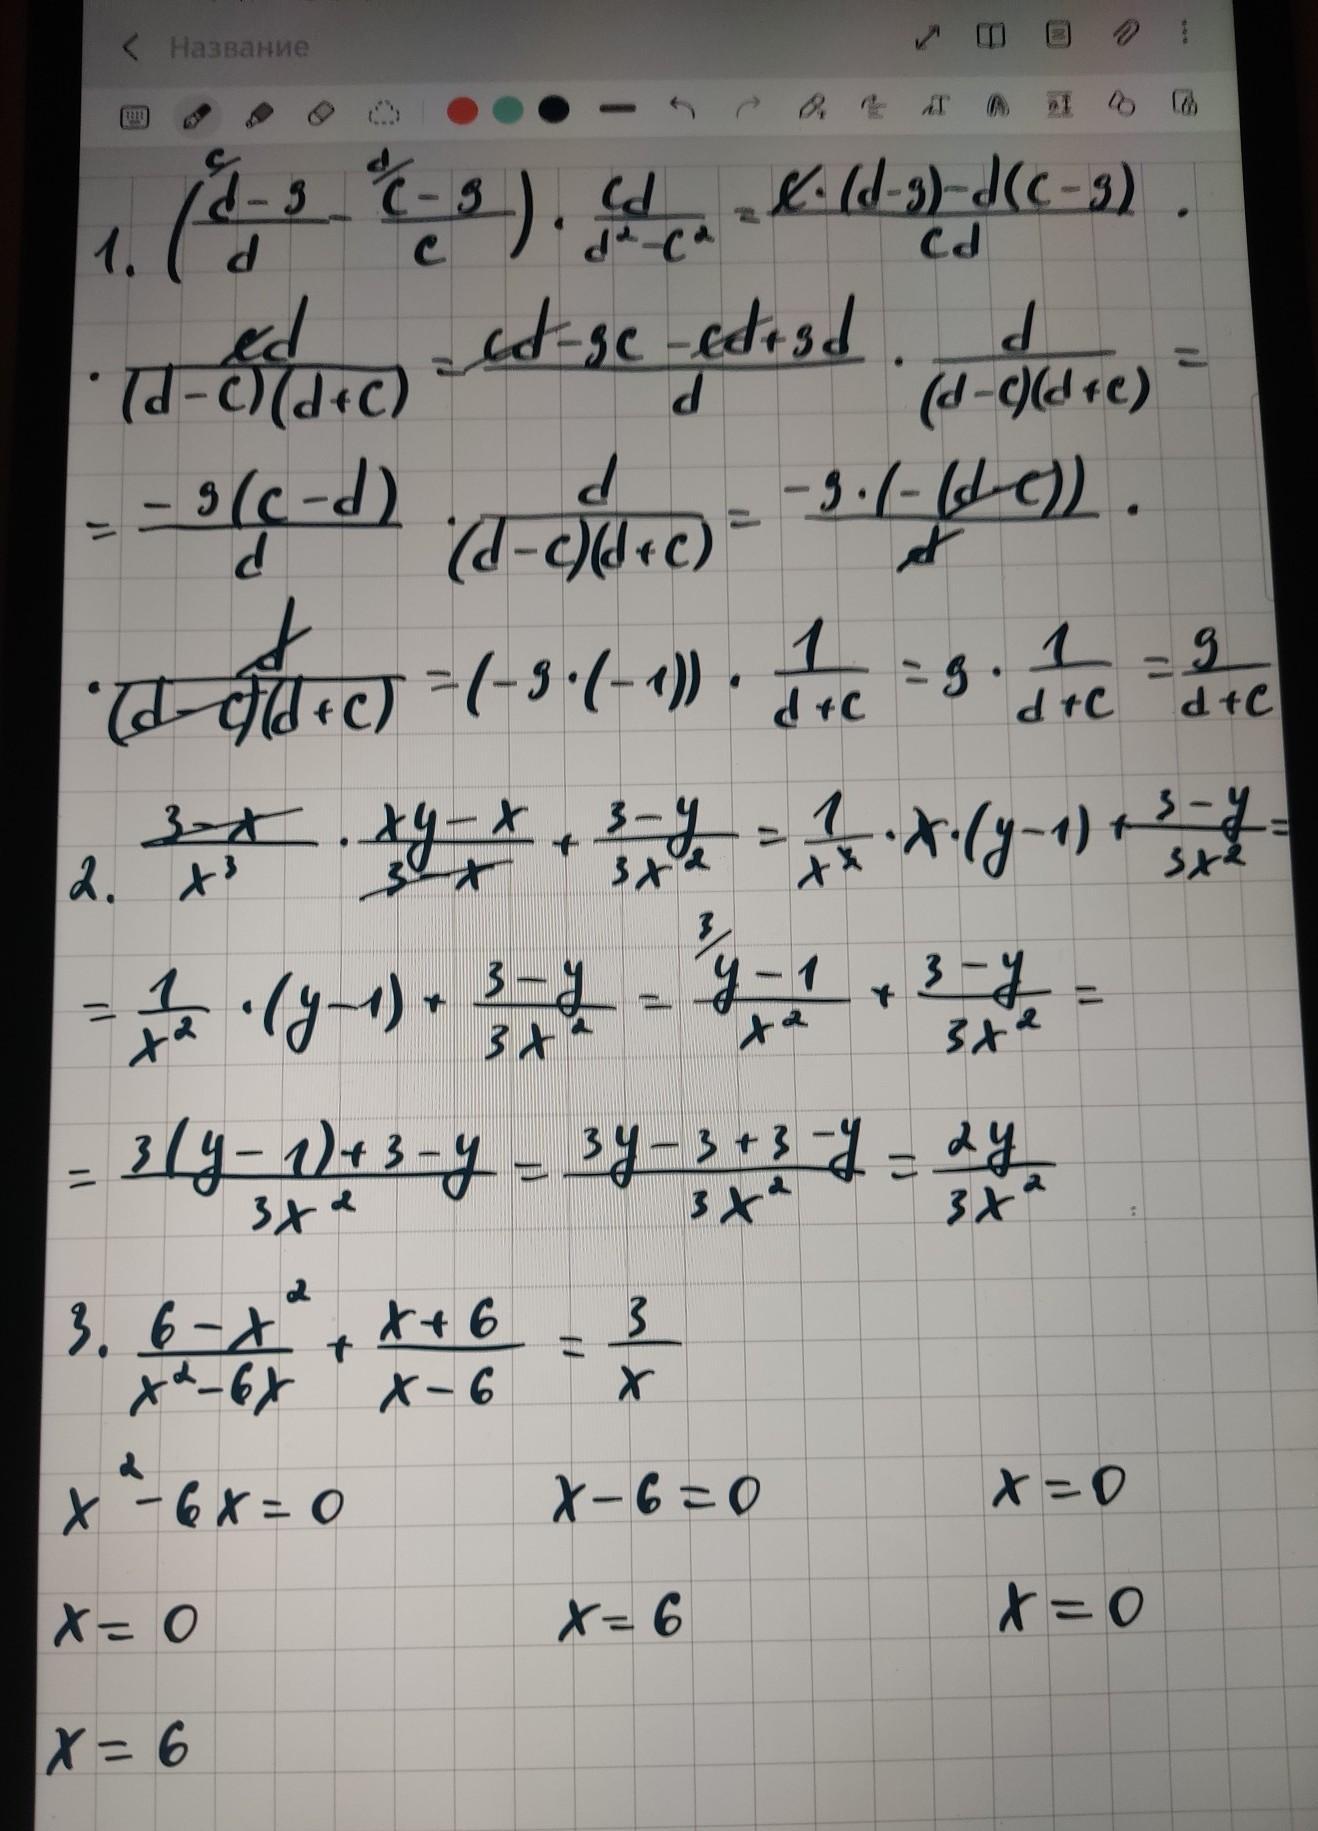 Название
1. (c/ (d-9)/d - d/ (c-9)/c) · cd/(d²-c²) = (c·(d-9)-d(c-9))/cd ·
· cd/((d-c)(d+c)) = (cd-9c-cd+9d)/d · d/((d-c)(d+c)) =
= (-9(c-d))/d · d/((d-c)(d+c)) = (-9·(-(d-c)))/d ·
· d/((d-c)(d+c)) = (-9·(-1)) · 1/(d+c) = 9 · 1/(d+c) = 9/(d+c)
2. (3-x)/x³ · (xy-x)/(3-x) + (3-y)/(3x²) = 1/x³ · x·(y-1) + (3-y)/(3x²) =
= 1/x² · (y-1) + (3-y)/(3x²) = 3/ (y-1)/x² + (3-y)/(3x²) =
= (3(y-1)+3-y)/(3x²) = (3y-3+3-y)/(3x²) = 2y/(3x²)
3. (6-x²)/(x²-6x) + (x+6)/(x-6) = 3/x
x²-6x=0 x-6=0 x=0
x=0 x=6 x=0
x=6